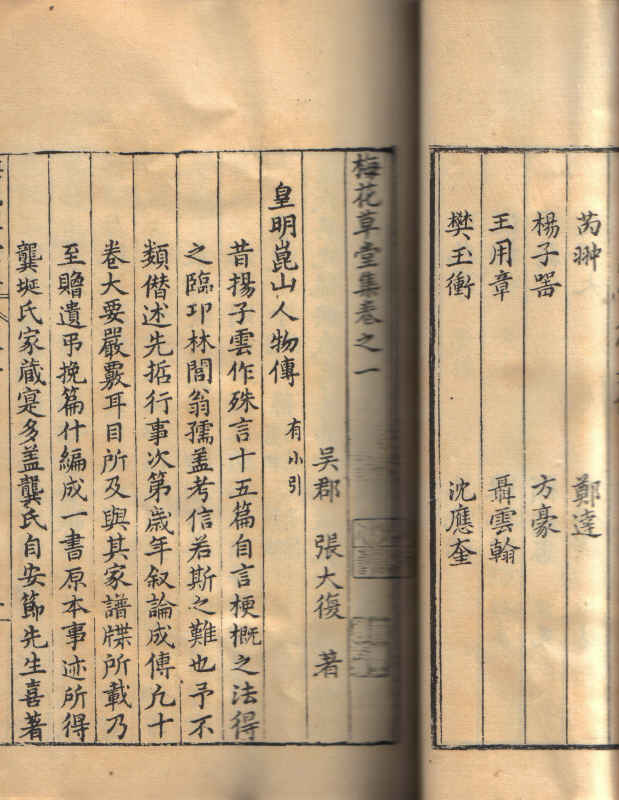 芮翀 鄭達
楊子器 方豪
王用章 聶雲翰
樊玉衡 沈應奎
梅花草堂集卷之一
吳郡 張大復 著
皇明崑山人物傳 有小引
昔揚子雲作殊言十五篇自言梗概之法得
之臨邛林閭翁孺蓋考信若斯之難也予不
類僭述先喆行事次第歲年叙論成傳凢十
卷大要嚴覈耳目所及與其家譜牒所載乃
至贈遺弔挽篇什編成一書原本事迹所得
龔埏氏家蔵寔多盖龔氏自安節先生喜著